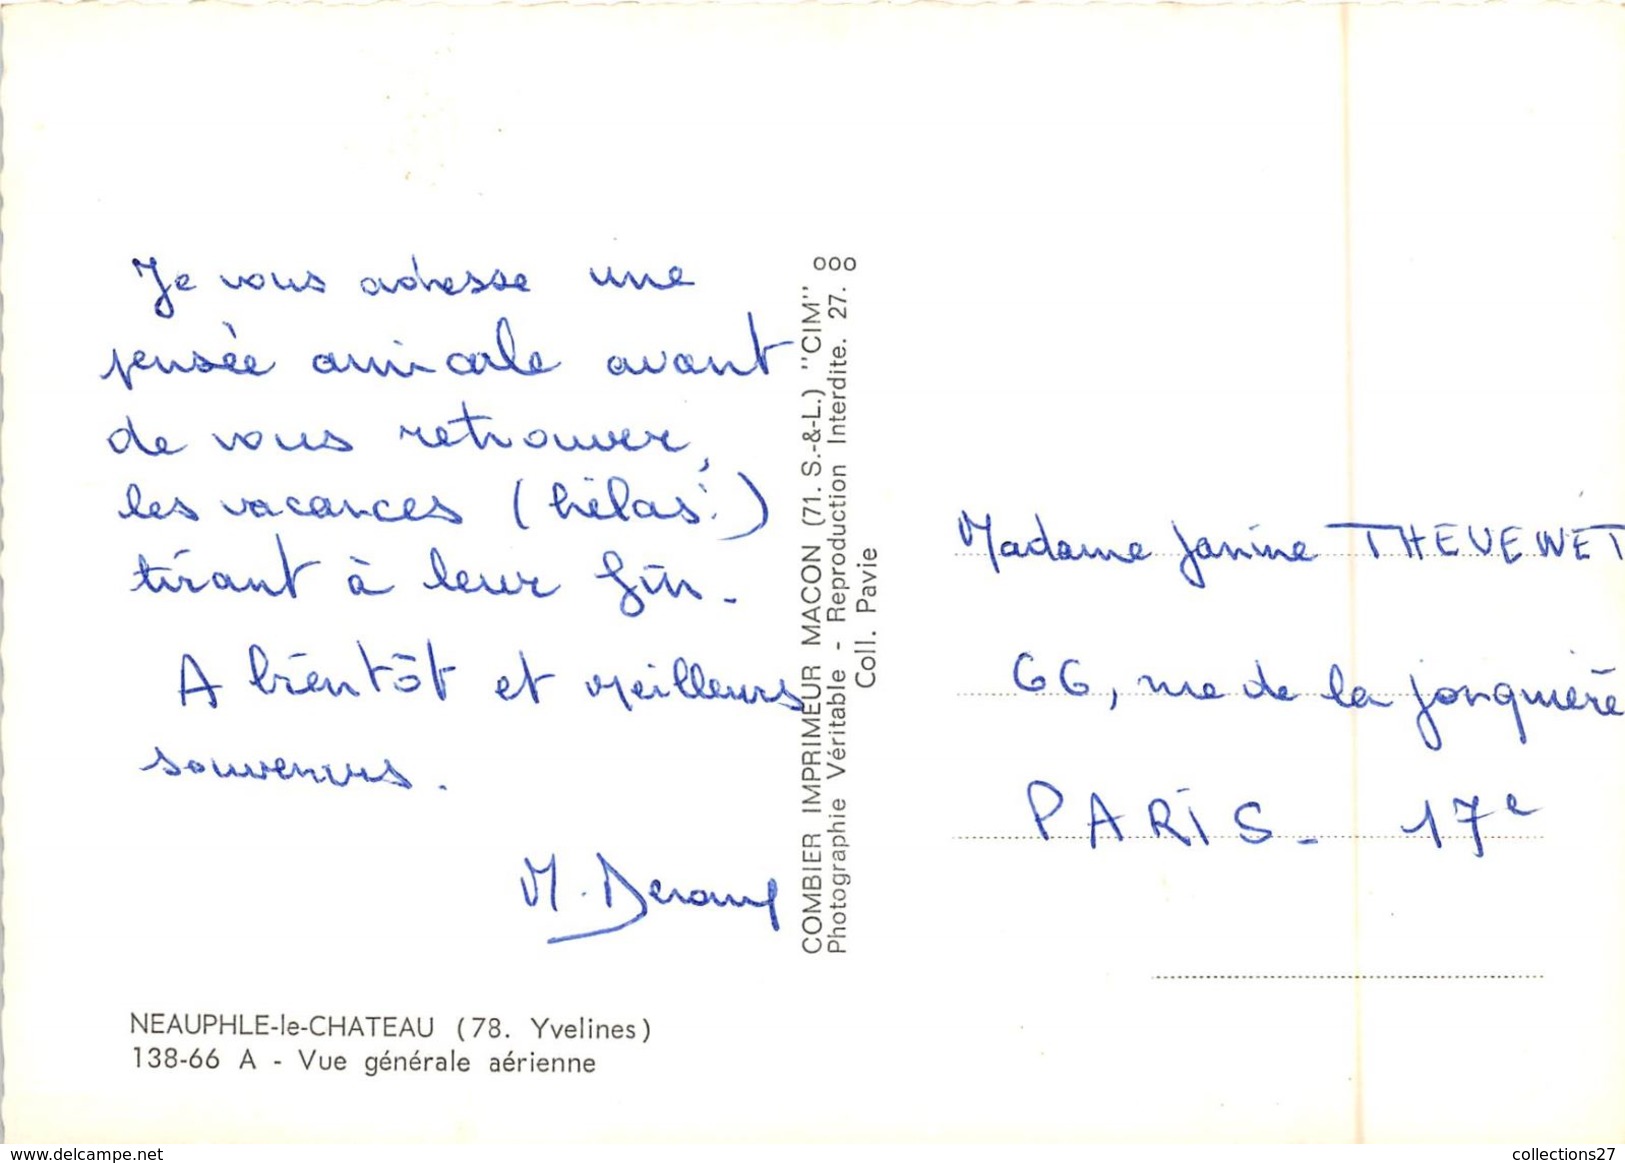 Je vous adresse une
pensée amicale avant
de vous retrouver,
les vacances (hélas!)
tirant à leur fin.
A bientôt et meilleurs
souvenirs.
M.
NEAUPHLE-le-CHATEAU (78. Yvelines)
138-66 A - Vue générale aérienne
COMBIER IMPRIMEUR MACON (71. S.-&-L.) "CIM"
Photographie Véritable - Reproduction Interdite. 27. ooo
Coll. Pavie
Madame Janine THEVENET
66, rue de la Jonquière
PARIS - 17e
www.delcampe.net
collections27